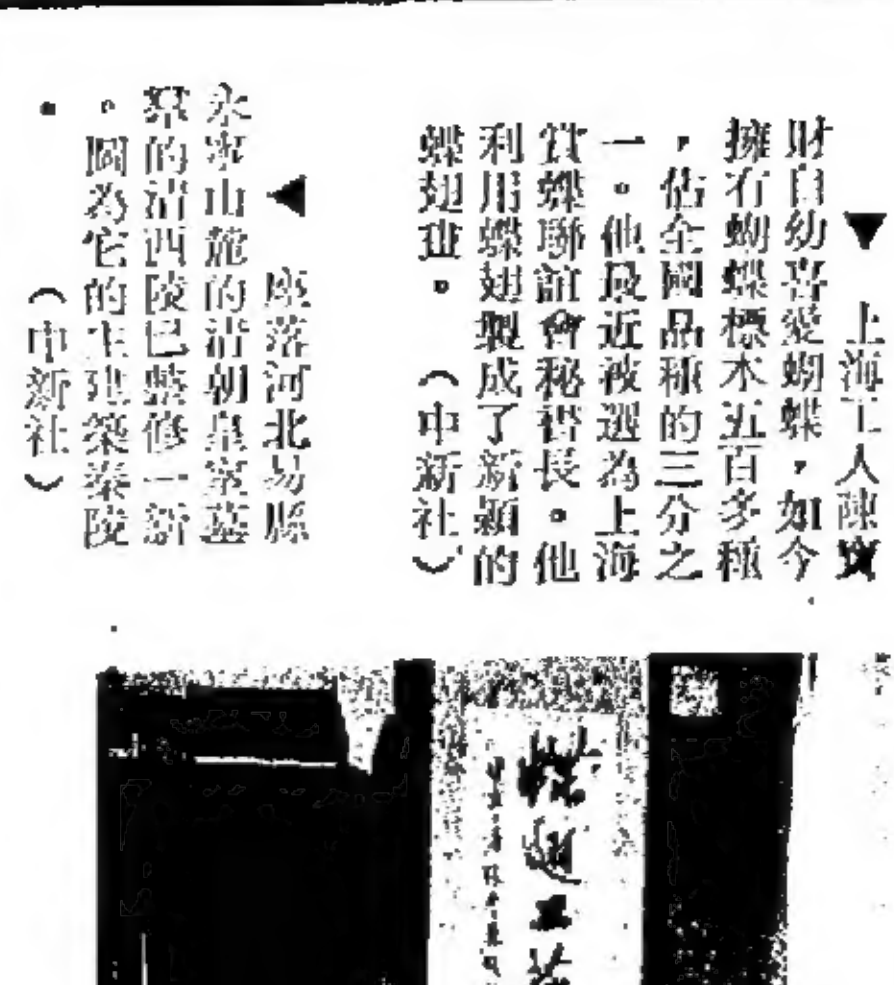 ▼ 上海工人陳寶
財自幼喜愛蝴蝶，如今
擁有蝴蝶標本五百多種
，佔全國品種的三分之
一。他最近被選為上海
賞蝶聯誼會秘書長。他
利用蝶翅製成了新穎的
蝶翅畫。（中新社）
◀ 座落河北易縣
永寧山麓的清朝皇室墓
羣的清西陵已整修一新
。圖為它的主建築泰陵
。（中新社）